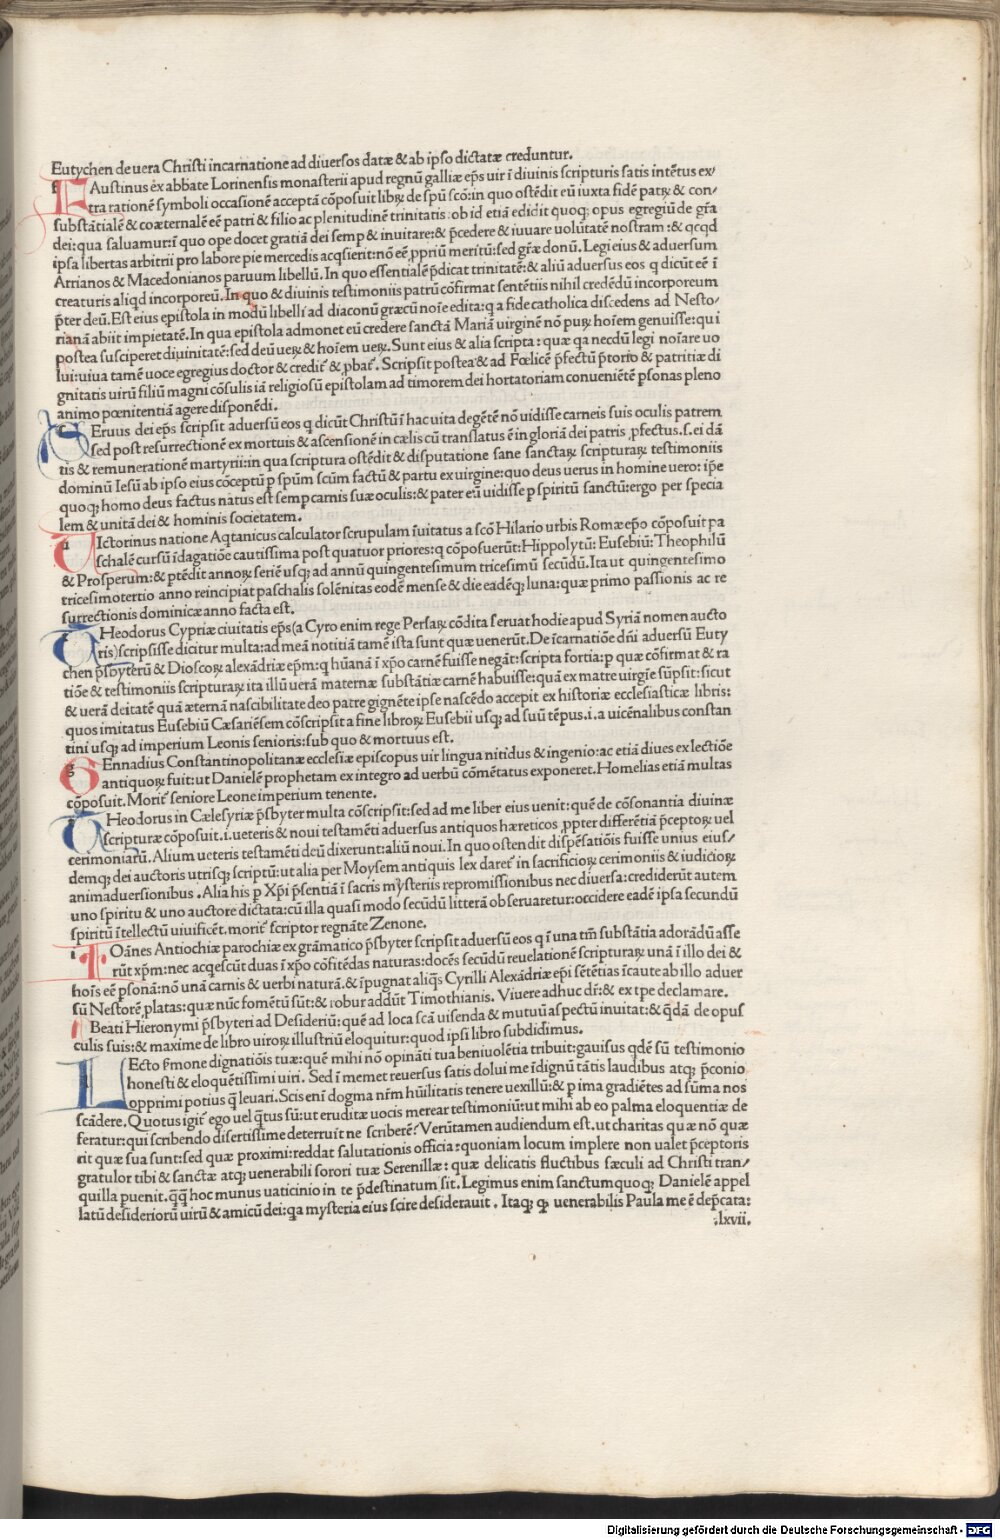 Eutychen de uera Christi incarnatione ad diuersos datæ & ab ipso dictatæ creduntur.
FAustinus ex abbate Lorinensis monasterii apud regnũ galliæ ep̃s uir ĩ diuinis scripturis satis intẽtus ex/
tra rationẽ symboli occasionẽ acceptã cõposuit libꝝ de spũ scõ: in quo ostẽdit eũ iuxta fidẽ patꝝ & con/
substãtialẽ & coæternalẽ eẽ patri & filio ac plenitudinẽ trinitatis: ob id etiã edidit quoqꝫ opus egregiũ de gr̃a
dei: qua saluamur: ĩ quo ope docet gratiã dei semp & inuitare: & p̃cedere & iuuare uolũtatẽ nostram: & qcqd
ipsa libertas arbitrii pro labore pie mercedis acqsierit: nõ eẽ ꝓpriũ meritũ: sed gr̃æ donũ. Legi eius & aduersum
Arrianos & Macedonianos paruum libellũ. In quo essentialẽ p̃dicat trinitatẽ: & aliũ aduersus eos q dicũt eẽ ĩ
creaturis aliqd incorporeũ. In quo & diuinis testimoniis patrũ cõfirmat sentẽtiis nihil credẽdũ incorporeum
p̃ter deũ. Est eius epistola in modũ libelli ad diaconũ græcũ noĩe edita: q a fide catholica discedens ad Nesto/
rianã abiit impietatẽ. In qua epistola admonet eũ credere sanctã Mariã uirginẽ nõ puꝝ hoĩem genuisse: qui
postea susciperet diuinitatẽ: sed deũ ueꝝ & hoĩem ueꝝ. Sunt eius & alia scripta: quæ qa necdũ legi noĩare uo
lui: uiua tamẽ uoce egregius doctor & credit᷑ & ꝓbat᷑. Scripsit postea & ad Fœlicẽ p̃fectũ p̃torio & patritiæ di
gnitatis uirũ filiũ magni cõsulis iã religiosũ epistolam ad timorem dei hortatoriam conueniẽtẽ psonas pleno
animo pœnitentiã agere disponẽdi.
SEruus dei ep̃s scripsit aduersũ eos q dicũt Christũ ĩ hac uita degẽtẽ nõ uidisse carneis suis oculis patrem
sed post resurrectionẽ ex mortuis & ascensionẽ in cælis cũ translatus ẽ in gloriã dei patris ꝓfectus. s. ei dã
tis & remunerationẽ martyrii: in qua scriptura ostẽdit & disputatione sane sanctaꝝ scripturaꝝ testimoniis
dominũ Iesũ ab ipso eius cõceptũ p spũm scũm factũ & partu ex uirgine: quo deus uerus in homine uero: ip̃e
quoqꝫ homo deus factus natus est semp carnis suæ oculis: & pater eũ uidisse p spiritũ sanctũ: ergo per specia
lem & unitã dei & hominis societatem.
UIctorinus natione Aqtanicus calculator scrupulam ĩuitatus a scõ Hilario urbis Romæ ep̃o cõposuit pa
schalẽ cursũ ĩdagatiõe cautissima post quatuor priores: q cõposuerũt: Hippolytũ: Eusebiũ: Theophilũ
& Prosperum: & ptẽdit annoꝝ seriẽ usqꝫ ad annũ quingentesimum tricesimũ secũdũ. Ita ut quingentesimo
tricesimotertio anno reincipiat paschalis solẽnitas eodẽ mense & die eadẽqꝫ luna: quæ primo passionis ac re
surrectionis dominicæ anno facta est.
THeodorus Cypriæ ciuitatis ep̃s (a Cyro enim rege Persaꝝ cõdita seruat hodie apud Syriã nomen aucto
ris) scripsisse dicitur multa: ad meã notitiã tamẽ ista sunt quæ uenerũt. De ĩcarnatiõe dñi aduersũ Euty
chen p̃sbyterũ & Dioscoꝝ alexãdriæ ep̃m: q hũanã ĩ xp̃o carnẽ fuisse negãt: scripta fortia: p quæ cõfirmat & ra
tiõe & testimoniis scripturaꝝ ita illũ uerã maternæ substãtiæ carnẽ habuisse: quã ex matre uirgĩe sũpsit: sicut
& uerã deitatẽ quã æternã nascibilitate deo patre gignẽte ipse nascẽdo accepit ex historiæ ecclesiasticæ libris:
quos imitatus Eusebiũ Cæsariẽsem cõscripsit a fine libroꝝ Eusebii usqꝫ ad suũ tẽpus. i. a uicẽnalibus constan
tini usqꝫ ad imperium Leonis senioris: sub quo & mortuus est.
GEnnadius Constantinopolitanæ ecclesiæ episcopus uir lingua nitidus & ingenio: ac etiã diues ex lectiõe
antiquoꝝ fuit: ut Danielẽ prophetam ex integro ad uerbũ cõmẽtatus exponeret. Homelias etiã multas
cõposuit. Morit᷑ seniore Leone imperium tenente.
THeodorus in Cælesyriæ p̃sbyter multa cõscripsit: sed ad me liber eius uenit: quẽ de cõsonantia diuinæ
scripturæ cõposuit. i. ueteris & noui testamẽti aduersus antiquos hæreticos ꝓpter differẽtiã p̃ceptoꝝ uel
cerimoniarũ. Alium ueteris testamẽti deũ dixerunt: aliũ noui. In quo ostendit dispẽsatiõis fuisse unius eius/
demqꝫ dei auctoris utrisqꝫ scriptũ: ut alia per Moysem antiquis lex daret᷑ in sacrificioꝝ cerimoniis & iudicioꝝ
animaduersionibus. Alia his p Xp̃i p̃sentiã ĩ sacris mysteriis repromissionibus nec diuersa: crediderũt autem
uno spiritu & uno auctore dictata: cũ illa quasi modo secũdũ litterã obseruaretur: occidere eadẽ ipsa secundũ
spiritũ ĩtellectũ uiuificẽt. morit᷑ scriptor regnãte Zenone.
IOãnes Antiochiæ parochiæ ex grãmatico p̃sbyter scripsit aduersũ eos q ĩ una tm̃ substãtia adorãdũ asse
rũt xp̃m: nec acqescũt duas ĩ xp̃o cõfitẽdas naturas: docẽs secũdũ reuelationẽ scripturaꝝ unã ĩ illo dei &
hoĩs eẽ psonã: nõ unã carnis & uerbi naturã. & ĩpugnat aliq̃s Cyrilli Alexãdriæ ep̃i sẽtẽtias ĩcaute ab illo aduer
sũ Nestorẽ ꝓlatas: quæ nũc fomẽtũ sũt: & robur addũt Timothianis. Viuere adhuc dr̃: & ex tpe declamare.
Beati Hieronymi p̃sbyteri ad Desideriũ: quẽ ad loca scã uisenda & mutuũ aspectũ inuitat: & q̃dã de opus
culis suis: & maxime de libro uiroꝝ illustriũ eloquitur: quod ipsi libro subdidimus.
LEcto p̃mone dignatiõis tuæ: quẽ mihi nõ opinãti tua beniuolẽtia tribuit: gauisus qdẽ sũ testimonio
honesti & eloquẽtissimi uiri. Sed ĩ memet reuersus satis dolui me ĩdignũ tãtis laudibus atqꝫ p̃conio
opprimi potius q̃ leuari. Scis enĩ dogma nr̃m hũilitatis tenere uexillũ: & p ima gradiẽtes ad sũma nos
scãdere. Quotus igit᷑ ego uel q̃tus sũ: ut eruditæ uocis merear testimoniũ: ut mihi ab eo palma eloquentiæ de
feratur: qui scribendo disertissime deterruit ne scriberẽ? Verũtamen audiendum est. ut charitas quæ nõ quæ
rit quæ sua sunt: sed quæ proximi: reddat salutationis officia: quoniam locum implere non ualet p̃ceptoris
gratulor tibi & sanctæ atqꝫ uenerabili sorori tuæ Serenillæ: quæ delicatis fluctibus sæculi ad Christi tran/
quilla puenit. q̃q̃ hoc munus uaticinio in te p̃destinatum sit. Legimus enim sanctum quoqꝫ Danielẽ appel
latũ desideriorũ uirũ & amicũ dei: qa mysteria eius scire desiderauit. Itaqꝫ qꝫ uenerabilis Paula me ẽ dep̃cata:
.lxvii.
Digitalisierung gefördert durch die Deutsche Forschungsgemeinschaft - DFG